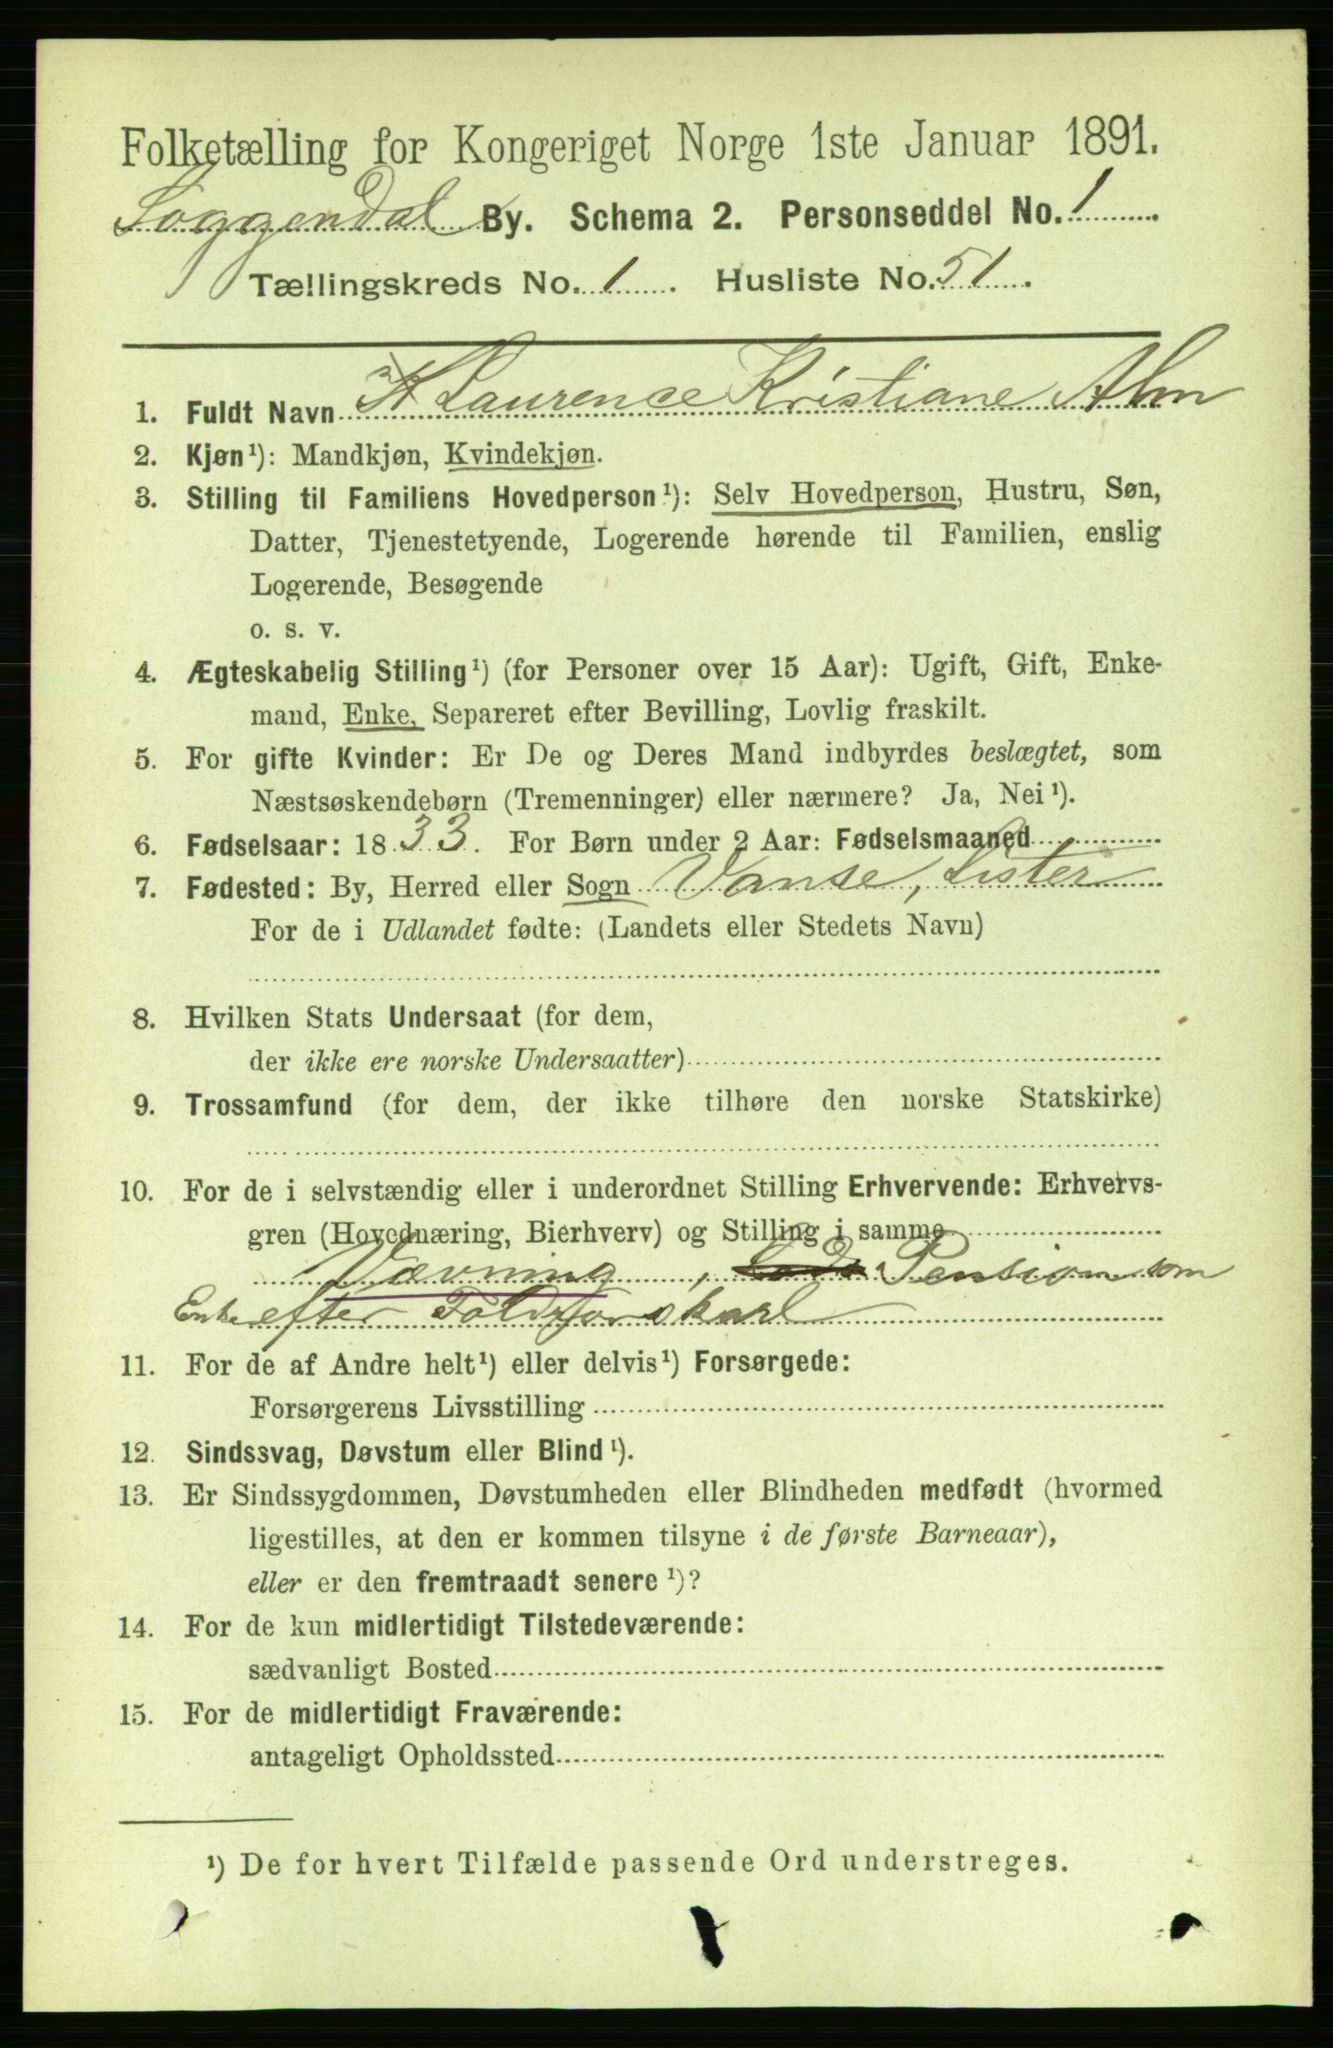 Folketælling for Kongeriget Norge 1ste Januar 1891.
Soggendal By. Schema 2. Personseddel No. 1
Tællingskreds No. 1. Husliste No. 51.
1. Fuldt Navn Laurence Kristiane Alm
2. Kjøn¹): Mandkjøn, Kvindekjøn.
3. Stilling til Familiens Hovedperson¹): Selv Hovedperson, Hustru, Søn,
Datter, Tjenestetyende, Logerende hørende til Familien, enslig
Logerende, Besøgende
o. s. v.
4. Ægteskabelig Stilling¹) (for Personer over 15 Aar): Ugift, Gift, Enke-
mand, Enke, Separeret efter Bevilling, Lovlig fraskilt.
5. For gifte Kvinder: Er De og Deres Mand indbyrdes beslægtet, som
Næstsøskendebørn (Tremenninger) eller nærmere? Ja, Nei¹).
6. Fødselsaar: 1833. For Børn under 2 Aar: Fødselsmaaned
7. Fødested: By, Herred eller Sogn Vanse, Lister
For de i Udlandet fødte: (Landets eller Stedets Navn)
8. Hvilken Stats Undersaat (for dem,
der ikke ere norske Undersaatter)
9. Trossamfund (for dem, der ikke tilhøre den norske Statskirke)
10. For de i selvstændig eller i underordnet Stilling Erhvervende: Erhvervs-
gren (Hovednæring, Bierhverv) og Stilling i samme
Vævning, Pension som
Enke efter Toldrorskarl
11. For de af Andre helt¹) eller delvis¹) Forsørgede:
Forsørgerens Livsstilling
12. Sindssvag, Døvstum eller Blind¹).
13. Er Sindssygdommen, Døvstumheden eller Blindheden medfødt (hvormed
ligestilles, at den er kommen tilsyne i de første Barneaar),
eller er den fremtraadt senere¹)?
14. For de kun midlertidigt Tilstedeværende:
sædvanligt Bosted
15. For de midlertidigt Fraværende:
antageligt Opholdssted
¹) De for hvert Tilfælde passende Ord understreges.